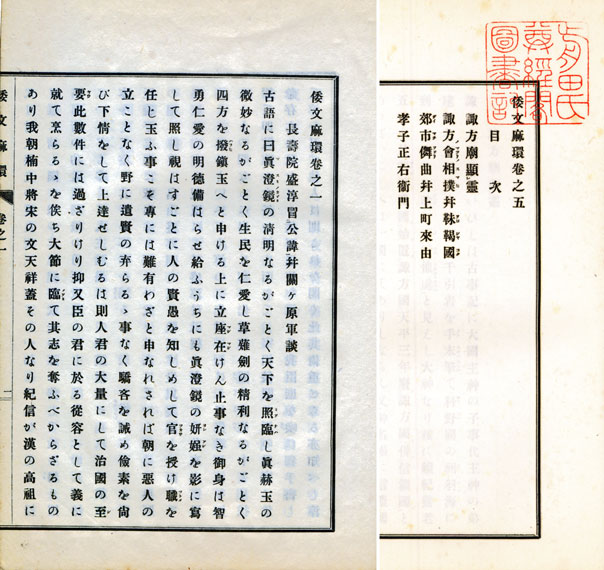 前田氏
尊經閣
圖書記
倭文麻環卷之五
目次
諏方廟顯靈
諏方會相撲幷靺鞨國
郊市儛曲幷上町來由
孝子正右衞門
倭文麻環卷之一
長壽院盛淳冒公諱幷關ヶ原軍談
古語に曰眞澄鏡の清明なるがごとく天下を照臨し眞赫玉の
微妙なるがごとく生民を仁愛し草薙劍の精利なるがごとく
四方を撥鎭玉へと申ける上に立座在けん止事なき御身は智
勇仁愛の明德備はらせ給ふうちにも眞澄鏡の妍媸を影に寫
して照し視はすごとに人の賢愚を知しめして官を授け職を
任じ玉ふ事こそ專には難有わざと申なれされば朝に惡人の
立ことなく野に遺賢の弃らるゝ事なく驕客を誡め儉素を尙
び下情をして上達せしむるは則人君の大量にして治國の至
要此數件には過ざりけり抑又臣の君に於る從容として義に
就て烹らるゝを俟ち大節に臨て其志を奪ふべからざるもの
あり我朝楠中將宋の文天祥蓋その人なり紀信が漢の高祖に
倭文麻環 卷之一
二